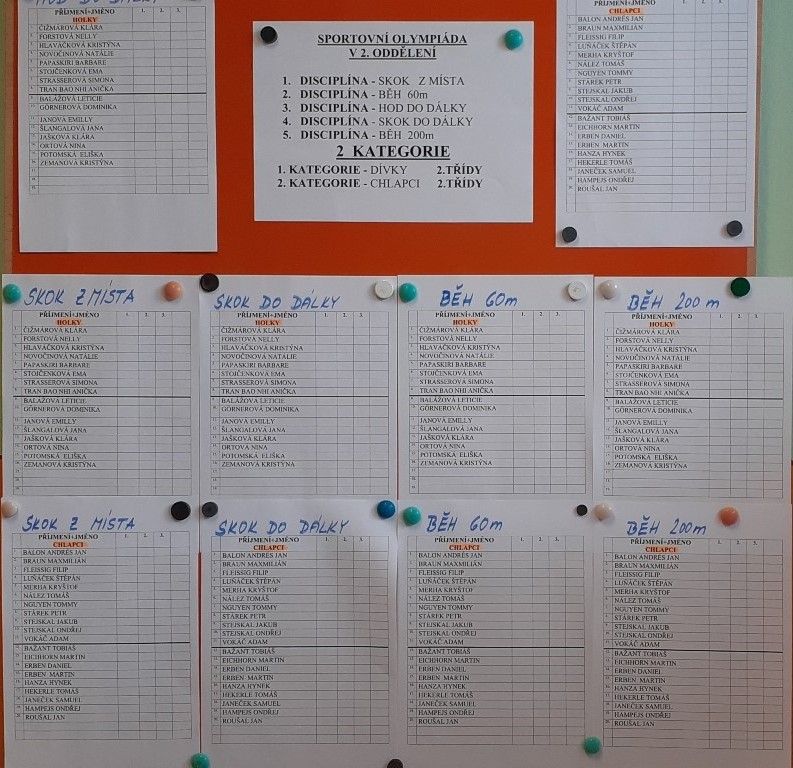 HOD DO DÁLKY
PŘÍJMENÍ+JMÉNO 1. 2. 3.
HOLKY
ČIŽMÁROVÁ KLÁRA
FORSTOVÁ NELLY
HLAVÁČKOVÁ KRISTÝNA
NOVOČINOVÁ NATÁLIE
PAPASKIRI BARBARE
STOJČENKOVÁ EMA
STRASSEROVÁ SIMONA
TRAN BAO NHI ANIČKA
BALÁŽOVÁ LETICIE
GÖRNEROVÁ DOMINIKA
JANOVÁ EMILLY
ŠLANGALOVÁ JANA
JAŠKOVÁ KLÁRA
ORTOVÁ NINA
POTOMSKÁ ELIŠKA
ZEMANOVÁ KRISTÝNA
SPORTOVNÍ OLYMPIÁDA
V 2. ODDĚLENÍ
1. DISCIPLÍNA - SKOK Z MÍSTA
2. DISCIPLÍNA - BĚH 60m
3. DISCIPLÍNA - HOD DO DÁLKY
4. DISCIPLÍNA - SKOK DO DÁLKY
5. DISCIPLÍNA - BĚH 200m
2 KATEGORIE
1. KATEGORIE - DÍVKY 2.TŘÍDY
2. KATEGORIE - CHLAPCI 2.TŘÍDY
PŘÍJMENÍ+JMÉNO 1. 2. 3.
CHLAPCI
BALON ANDRÉS JAN
BRAUN MAXMILIÁN
FLEISSIG FILIP
LUŇÁČEK ŠTĚPÁN
MERHA KRYŠTOF
NÁLEZ TOMÁŠ
NGUYEN TOMMY
STÁREK PETR
STEJSKAL JAKUB
STEJSKAL ONDŘEJ
VOKÁČ ADAM
BAŽANT TOBIÁŠ
EICHHORN MARTIN
ERBEN DANIEL
ERBEN MARTIN
HANZA HYNEK
HEKERLE TOMÁŠ
JANEČEK SAMUEL
HAMPEJS ONDŘEJ
ROUŠAL JAN
SKOK Z MÍSTA
PŘÍJMENÍ+JMÉNO 1. 2. 3.
HOLKY
ČIŽMÁROVÁ KLÁRA
FORSTOVÁ NELLY
HLAVÁČKOVÁ KRISTÝNA
NOVOČINOVÁ NATÁLIE
PAPASKIRI BARBARE
STOJČENKOVÁ EMA
STRASSEROVÁ SIMONA
TRAN BAO NHI ANIČKA
BALÁŽOVÁ LETICIE
GÖRNEROVÁ DOMINIKA
JANOVÁ EMILLY
ŠLANGALOVÁ JANA
JAŠKOVÁ KLÁRA
ORTOVÁ NINA
POTOMSKÁ ELIŠKA
ZEMANOVÁ KRISTÝNA
SKOK DO DÁLKY
PŘÍJMENÍ+JMÉNO 1. 2. 3.
HOLKY
ČIŽMÁROVÁ KLÁRA
FORSTOVÁ NELLY
HLAVÁČKOVÁ KRISTÝNA
NOVOČINOVÁ NATÁLIE
PAPASKIRI BARBARE
STOJČENKOVÁ EMA
STRASSEROVÁ SIMONA
TRAN BAO NHI ANIČKA
BALÁŽOVÁ LETICIE
GÖRNEROVÁ DOMINIKA
JANOVÁ EMILLY
ŠLANGALOVÁ JANA
JAŠKOVÁ KLÁRA
ORTOVÁ NINA
POTOMSKÁ ELIŠKA
ZEMANOVÁ KRISTÝNA
BĚH 60m
PŘÍJMENÍ+JMÉNO 1. 2. 3.
HOLKY
ČIŽMÁROVÁ KLÁRA
FORSTOVÁ NELLY
HLAVÁČKOVÁ KRISTÝNA
NOVOČINOVÁ NATÁLIE
PAPASKIRI BARBARE
STOJČENKOVÁ EMA
STRASSEROVÁ SIMONA
TRAN BAO NHI ANIČKA
BALÁŽOVÁ LETICIE
GÖRNEROVÁ DOMINIKA
JANOVÁ EMILLY
ŠLANGALOVÁ JANA
JAŠKOVÁ KLÁRA
ORTOVÁ NINA
POTOMSKÁ ELIŠKA
ZEMANOVÁ KRISTÝNA
BĚH 200m
PŘÍJMENÍ+JMÉNO 1. 2. 3.
HOLKY
ČIŽMÁROVÁ KLÁRA
FORSTOVÁ NELLY
HLAVÁČKOVÁ KRISTÝNA
NOVOČINOVÁ NATÁLIE
PAPASKIRI BARBARE
STOJČENKOVÁ EMA
STRASSEROVÁ SIMONA
TRAN BAO NHI ANIČKA
BALÁŽOVÁ LETICIE
GÖRNEROVÁ DOMINIKA
JANOVÁ EMILLY
ŠLANGALOVÁ JANA
JAŠKOVÁ KLÁRA
ORTOVÁ NINA
POTOMSKÁ ELIŠKA
ZEMANOVÁ KRISTÝNA
SKOK Z MÍSTA
PŘÍJMENÍ+JMÉNO 1. 2. 3.
CHLAPCI
BALON ANDRÉS JAN
BRAUN MAXMILIÁN
FLEISSIG FILIP
LUŇÁČEK ŠTĚPÁN
MERHA KRYŠTOF
NÁLEZ TOMÁŠ
NGUYEN TOMMY
STÁREK PETR
STEJSKAL JAKUB
STEJSKAL ONDŘEJ
VOKÁČ ADAM
BAŽANT TOBIÁŠ
EICHHORN MARTIN
ERBEN DANIEL
ERBEN MARTIN
HANZA HYNEK
HEKERLE TOMÁŠ
JANEČEK SAMUEL
HAMPEJS ONDŘEJ
ROUŠAL JAN
SKOK DO DÁLKY
PŘÍJMENÍ+JMÉNO 1. 2. 3.
CHLAPCI
BALON ANDRÉS JAN
BRAUN MAXMILIÁN
FLEISSIG FILIP
LUŇÁČEK ŠTĚPÁN
MERHA KRYŠTOF
NÁLEZ TOMÁŠ
NGUYEN TOMMY
STÁREK PETR
STEJSKAL JAKUB
STEJSKAL ONDŘEJ
VOKÁČ ADAM
BAŽANT TOBIÁŠ
EICHHORN MARTIN
ERBEN DANIEL
ERBEN MARTIN
HANZA HYNEK
HEKERLE TOMÁŠ
JANEČEK SAMUEL
HAMPEJS ONDŘEJ
ROUŠAL JAN
BĚH 60m
PŘÍJMENÍ+JMÉNO 1. 2. 3.
CHLAPCI
BALON ANDRÉS JAN
BRAUN MAXMILIÁN
FLEISSIG FILIP
LUŇÁČEK ŠTĚPÁN
MERHA KRYŠTOF
NÁLEZ TOMÁŠ
NGUYEN TOMMY
STÁREK PETR
STEJSKAL JAKUB
STEJSKAL ONDŘEJ
VOKÁČ ADAM
BAŽANT TOBIÁŠ
EICHHORN MARTIN
ERBEN DANIEL
ERBEN MARTIN
HANZA HYNEK
HEKERLE TOMÁŠ
JANEČEK SAMUEL
HAMPEJS ONDŘEJ
ROUŠAL JAN
BĚH 200m
PŘÍJMENÍ+JMÉNO 1. 2. 3.
CHLAPCI
BALON ANDRÉS JAN
BRAUN MAXMILIÁN
FLEISSIG FILIP
LUŇÁČEK ŠTĚPÁN
MERHA KRYŠTOF
NÁLEZ TOMÁŠ
NGUYEN TOMMY
STÁREK PETR
STEJSKAL JAKUB
STEJSKAL ONDŘEJ
VOKÁČ ADAM
BAŽANT TOBIÁŠ
EICHHORN MARTIN
ERBEN DANIEL
ERBEN MARTIN
HANZA HYNEK
HEKERLE TOMÁŠ
JANEČEK SAMUEL
HAMPEJS ONDŘEJ
ROUŠAL JAN